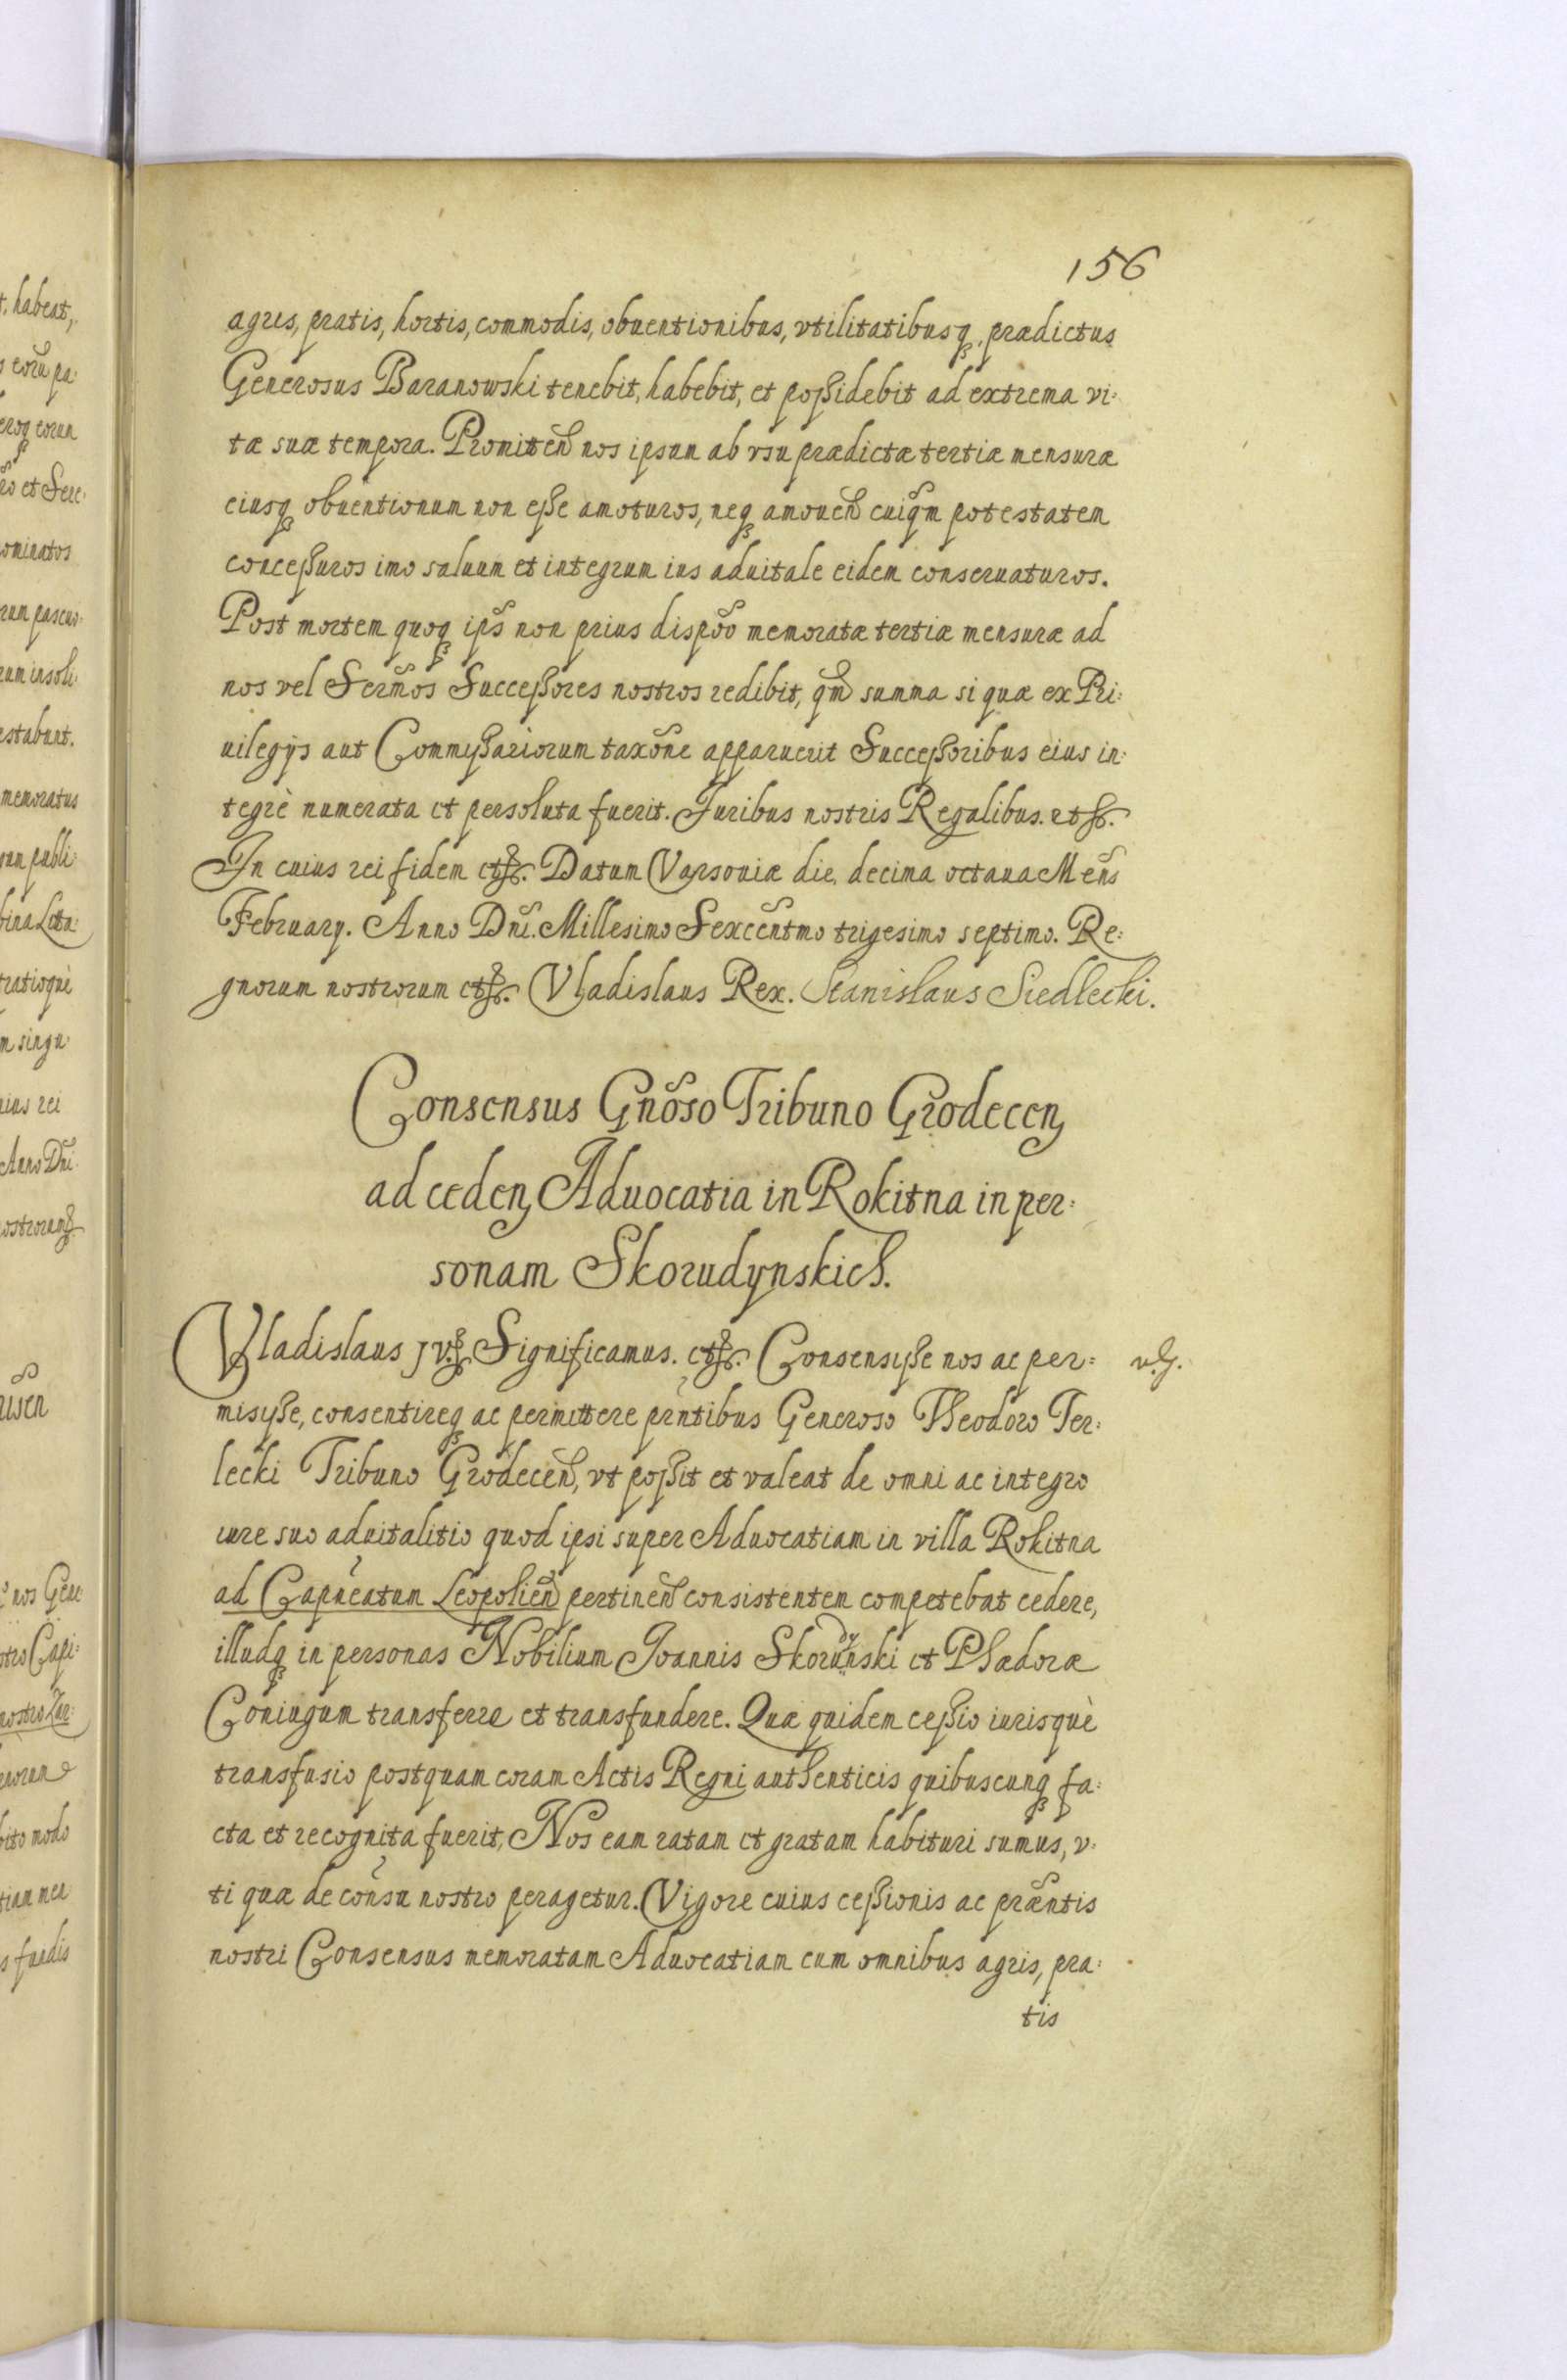 156
agris, pratis, hortis, commodis, obuentionibus, vtilitatibusq, prædictus
Generosus Baranowski tenebit, habebit, et poßidebit ad extrema vi:
tæ suæ tempora. Promitten̄ nos ipsum ab vsu prædictæ tertiæ mensuræ
eiusq obuentionum non eße amoturos, neq amouen̄ cuiq̄m potestatem
conceßuros imo saluum et integrum ius aduitale eidem conseruaturos.
Post mortem quoq ips̄ non prius dispo͠o memoratæ tertiæ mensuræ ad
nos vel Serm̄os Succeßores nostros redibit, qm̄ summa si quæ ex Pri:
uilegijs aut Commißariorum taxo͠ne apparuerit Succeßoribus eius in:
tegrè numerata et persoluta fuerit. Juribus nostris Regalibus. etc.
In cuius rei fidem etc. Datum Varsouiæ die decima octaua Men̄s
February. Anno Dn̄i. Millesimo Sexcen̄tmo trigesimo septimo. Re:
gnorum nostrorum etc. Vladislaus Rex. Stanislaus Siedlecki.
Consensus Gn̄oso Tribuno Grodecen
ad ceden Aduocatia in Rokitna in per:
sonam Skorudynskich.
Vladislaus IV. etc. Significamus. etc. Consensiße nos ac per:
misiße, consentireq ac permittere prn̄tibus Generoso Theodoro Ter:
lecki Tribuno Grodecen̄, vt poßit et valeat de omni ac integro
iure suo aduitalitio quod ipsi super Aduocatiam in villa Rokitna
ad Capn̄eatum Leopolien̄ pertinen̄ consistentem competebat cedere,
illudq in personas Nobilium Joannis Skorudynski et Phædoræ
Coniugum transferre et transfundere. Quæ quidem ceßio iurisquè
transfusio postquam coram Actis Regni authenticis quibuscunq fa:
cta et recognita fuerit, Nos eam ratam et gratam habituri sumus, v:
ti quæ de con̄su nostro peragetur. Vigore cuius ceßionis ac præn̄tis
nostri Consensus memoratam Aduocatiam cum omnibus agris, pra:
tis